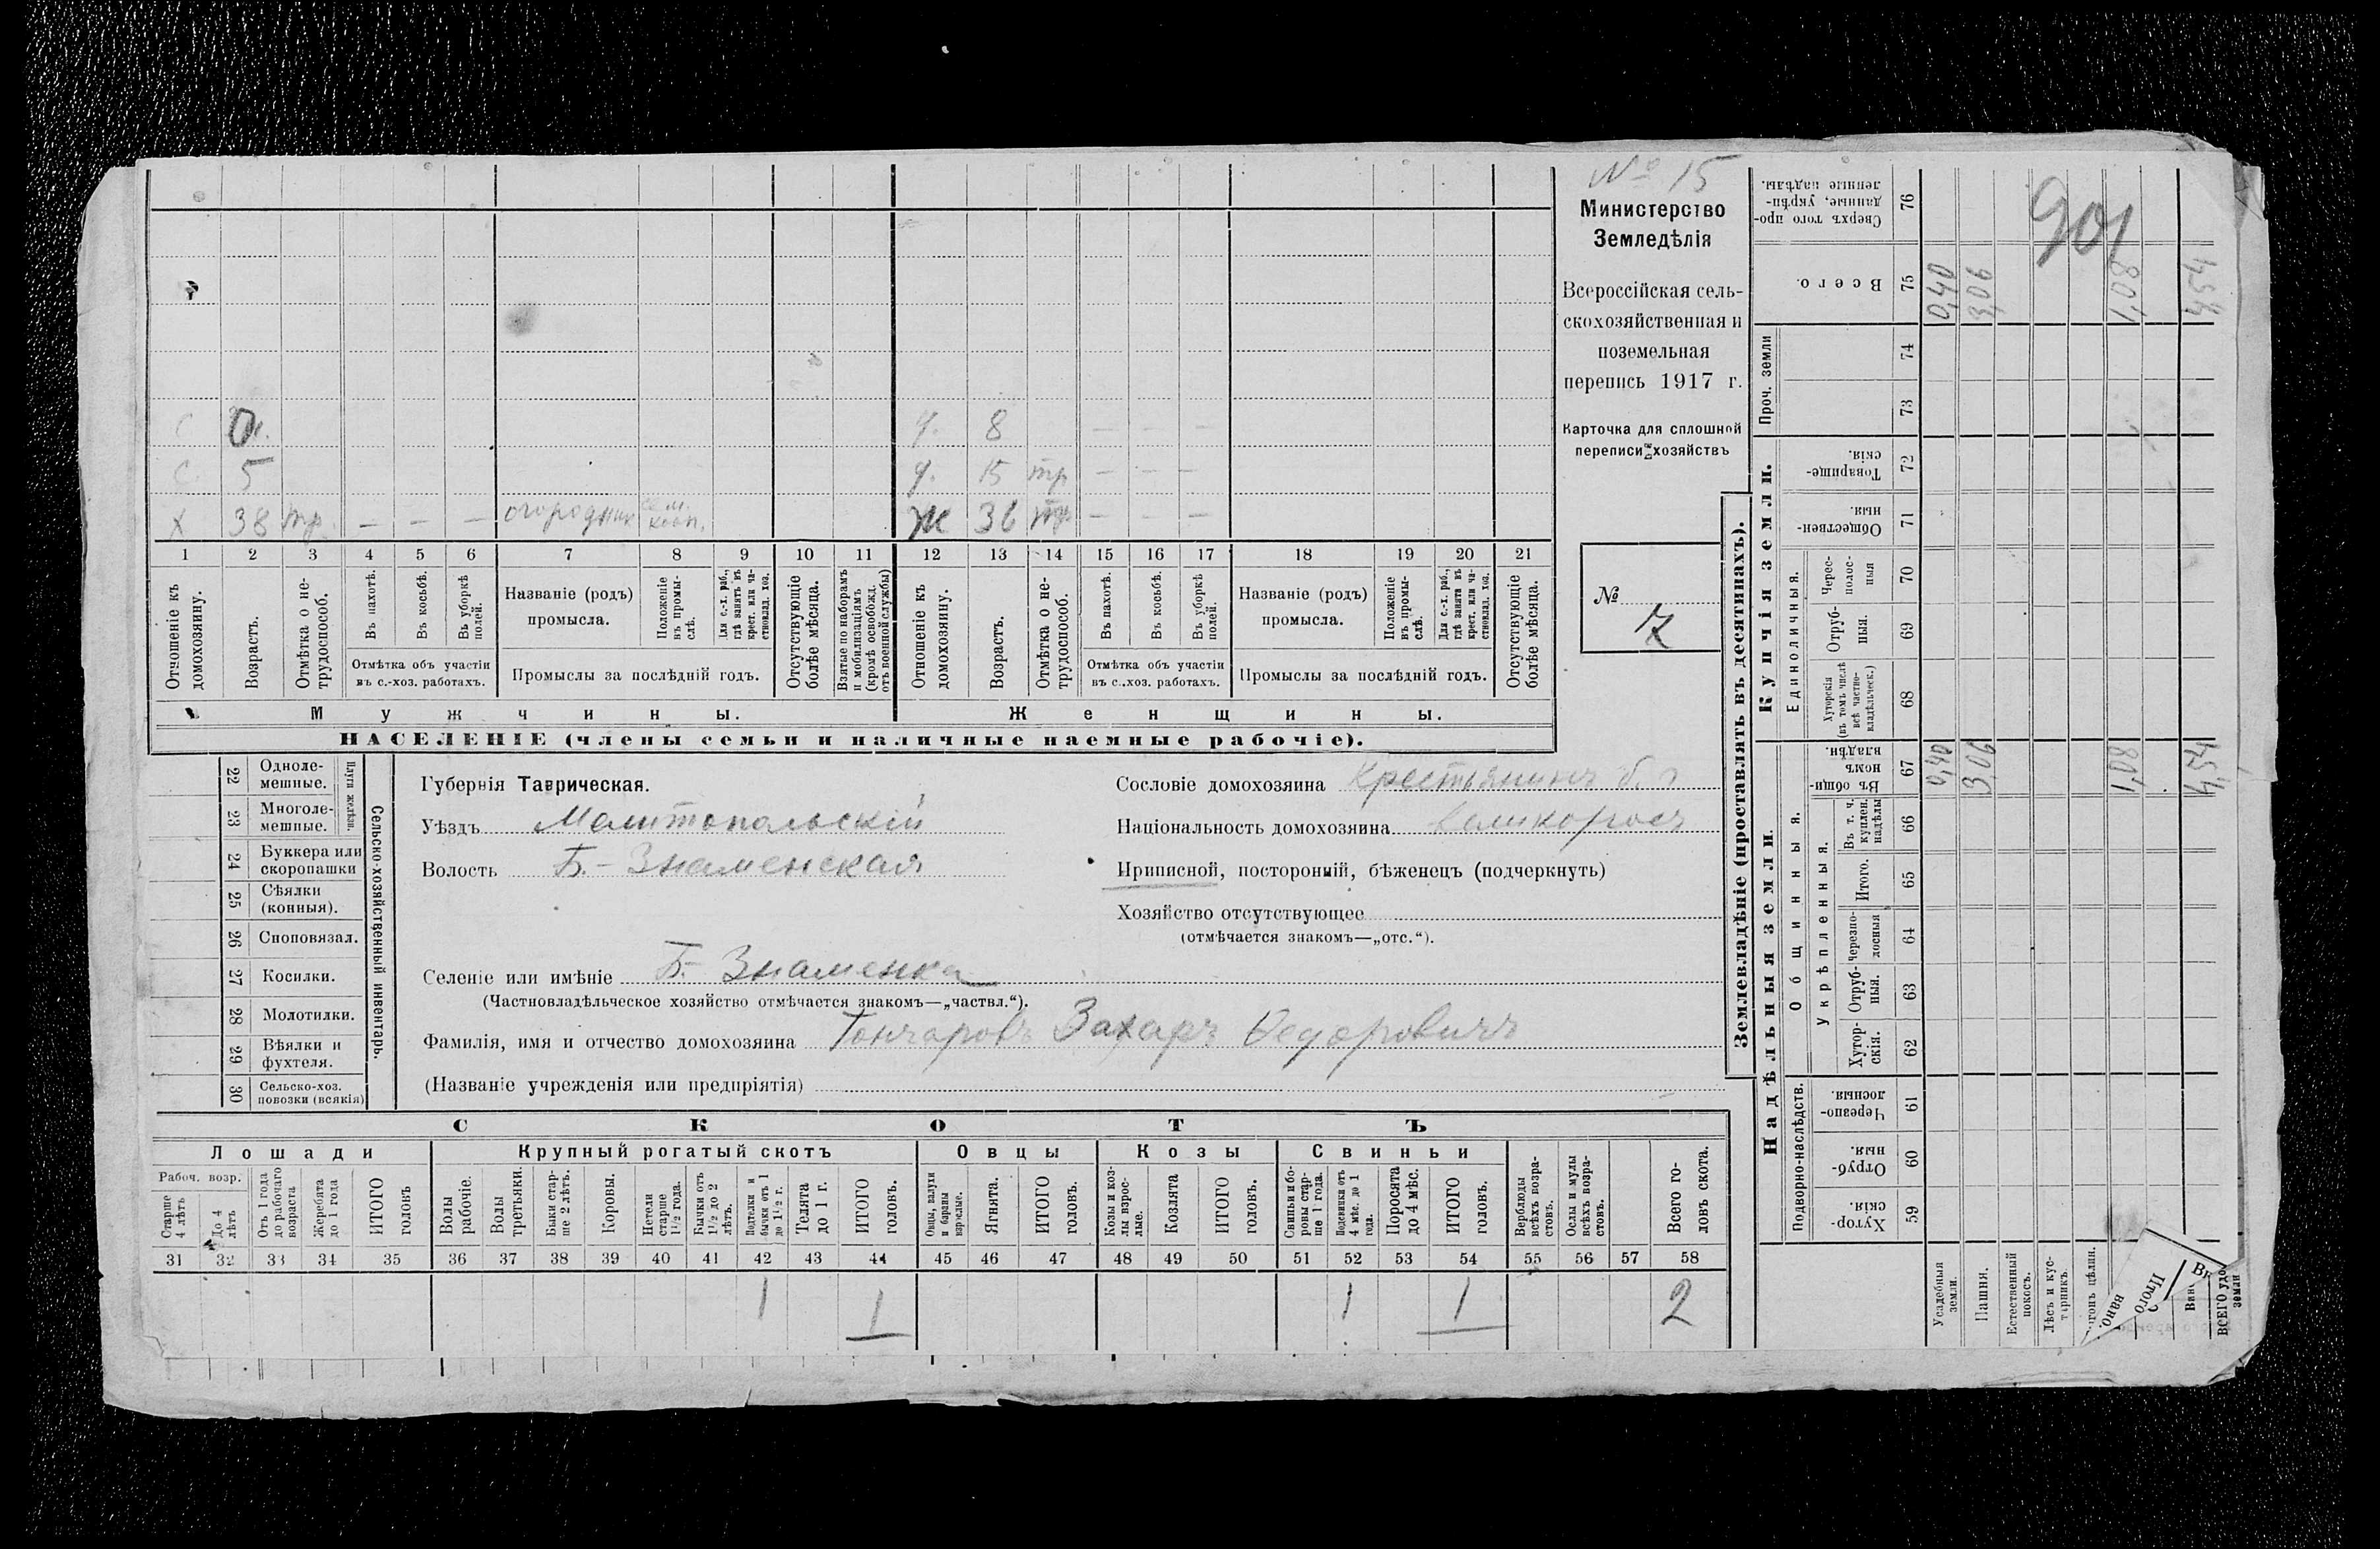 № 15
Министерство
Земледѣлія
Всероссійская сель-
скохозяйственная и
поземельная
перепись 1917 г.
Карточка для сплошной
переписи хозяйствъ
№
7
С
С. 5
Х 38 тр. – – – огородник
д. 8 – – –
д. 15 тр – – –
ж 36 тр – – –
1 2 3 4 5 6 7 8 9 10 11 12 13 14 15 16 17 18 19 20 21
Отношеніе къ домохозяину.
Возрастъ.
Отмѣтка о не-трудоспособ.
Въ пахотѣ.
Въ косьбѣ.
Въ уборкѣ полей.
Отмѣтка объ участіи
въ с.-хоз. работахъ.
Названіе (родъ)
промысла.
Положеніе въ промы-слѣ.
Для с.-х. раб., гдѣ занятъ въ крест. или ча-стновлад. хоз.
Промыслы за послѣдній годъ.
Отсутствующіе болѣе мѣсяца.
Взятые по наборамъ и мобилизаціямъ (кромѣ освобожд. отъ военной службы)
Отношеніе къ домохозяину.
Возрастъ.
Отмѣтка о не-трудоспособ.
Въ пахотѣ.
Въ косьбѣ.
Въ уборкѣ полей.
Отмѣтка объ участіи
въ с.-хоз. работахъ.
Названіе (родъ)
промысла.
Положеніе въ промы-слѣ.
Для с.-х. раб., гдѣ занята въ крест. или ча-стновлад. хоз.
Промыслы за послѣдній годъ.
Отсутствующіе болѣе мѣсяца.
Мужчины.
Женщины.
НАСЕЛЕНІЕ (члены семьи и наличные наемные рабочіе).
Сельско-хозяйственный инвентарь.
Плуги желѣзн.
22 Одноле-мешные.
23 Многоле-мешные.
24 Буккера или скоропашки
25 Сѣялки (конныя).
26 Сноповязал.
27 Косилки.
28 Молотилки.
29 Вѣялки и фухтеля.
30 Сельско-хоз. повозки (всякія)
Губернія Таврическая.
Уѣздъ Мелитопольскій
Волость Б.-Знаменская
Селеніе или имѣніе Б.-Знаменка
(Частновладѣльческое хозяйство отмѣчается знакомъ—„частвл.“).
Фамилія, имя и отчество домохозяина Гончаровъ Захаръ Федоровичъ
(Названіе учрежденія или предпріятія)
Сословіе домохозяина Крестьянинъ
Національность домохозяина Великороссъ
Приписной, посторонній, бѣженецъ (подчеркнуть)
Хозяйство отсутствующее
(отмѣчается знакомъ—„отс.“).
СКОТЪ
Лошади
Крупный рогатый скотъ
Овцы
Козы
Свиньи
Рабоч. возр.
Старше 4 лѣтъ
До 4 лѣтъ
Отъ 1 года до рабочаго возраста
Жеребята до 1 года
ИТОГО головъ
Волы рабочіе.
Волы третьяки.
Быки стар-ше 2 лѣтъ.
Коровы.
Нетели старше 1½ года.
Бычки отъ 1½ до 2 лѣтъ.
Подтелки и бычки отъ 1 до 1½ г.
Телята до 1 г.
ИТОГО головъ.
Овцы, валухи и бараны взрослые.
Ягнята.
ИТОГО головъ.
Козы и коз-лы взрос-лые.
Козлята
ИТОГО головъ.
Свиньи и бо-ровы стар-ше 1 года.
Подсвинки отъ 4 мѣс. до 1 года.
Поросята до 4 мѣс.
ИТОГО головъ.
Верблюды всѣхъ возра-стовъ.
Ослы и мулы всѣхъ возра-стовъ.
Всего го-ловъ скота.
31 32 33 34 35 36 37 38 39 40 41 42 43 44 45 46 47 48 49 50 51 52 53 54 55 56 57 58
1 1 1 1 2
Землевладѣніе (проставлять въ десятинахъ).
Надѣльныя земли.
Купчія земли.
Подворно-наслѣдств.
Общинныя.
Укрѣпленныя.
Единоличныя.
Проч. земли
59 Хутор-скія.
60 Отруб-ныя.
61 Черезпо-лосныя.
62 Хутор-скія.
63 Отруб-ныя.
64 Черезпо-лосныя
65 Итого.
66 Въ т. ч. куплен. надѣлы
67 Въ общи-номъ владѣн.
68 Хуторскія (въ томъ числѣ всѣ частно-владѣльческ.)
69 Отруб-ныя.
70 Черес-полос-ныя
71 Обществен-ныя.
72 Товарище-скія.
73
74
75 Всего.
76 Сверхъ того про-данные, укрѣп-ленные надѣлы.
Усадебныя земли.
0,40 0,40
Пашня.
3,06 3,06
Естественный покосъ.
Лѣсъ и кус-тарникъ.
1,08 1,08
Итого
ВСЕГО удо
земли
4,54 4,54
901